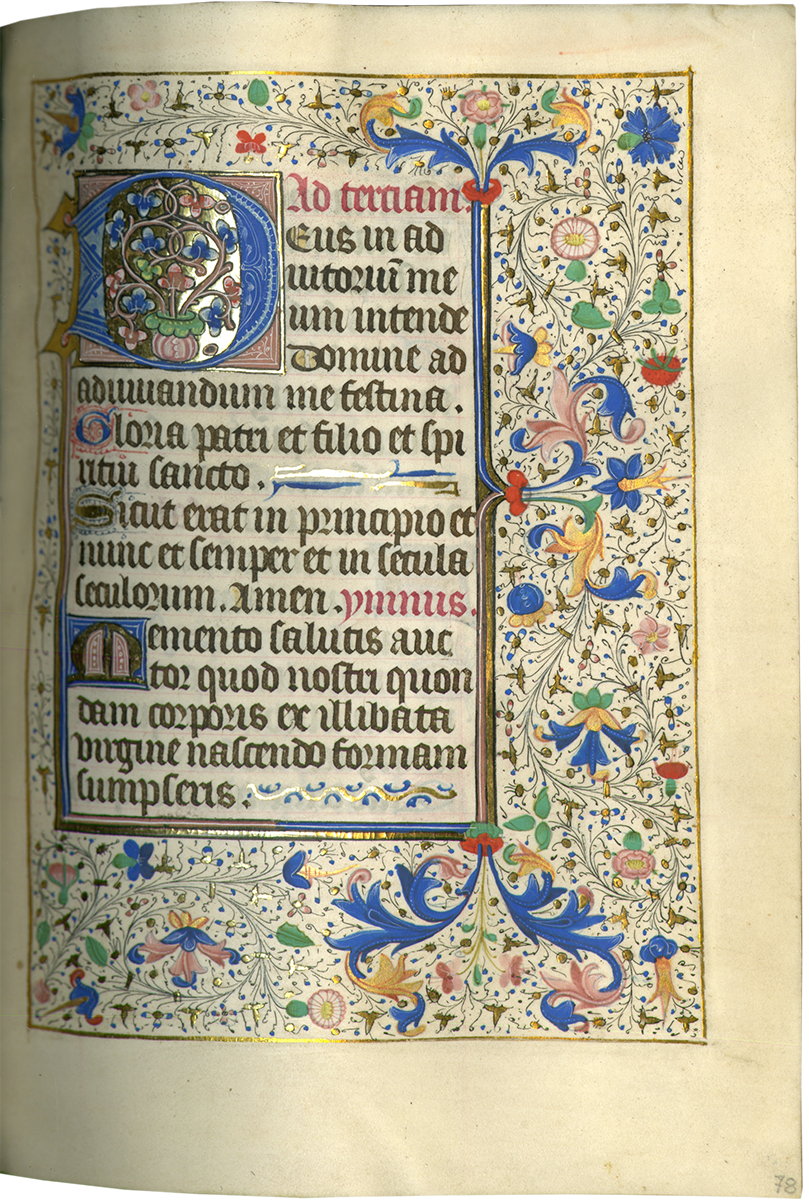 Ad terciam.
Deus in ad
iutoriū me
um intende
Domine ad
adiuuandium me festina.
Gloria patri et filio et spi
ritiu sancto.
Sicut erat in principio et
nunc et semper et in secula
seculorum. Amen. ymnus.
Memento salutis auc
tor quod nostri quon
dam corporis ex illibata
virgine nascendo formam
sumpseris.
78